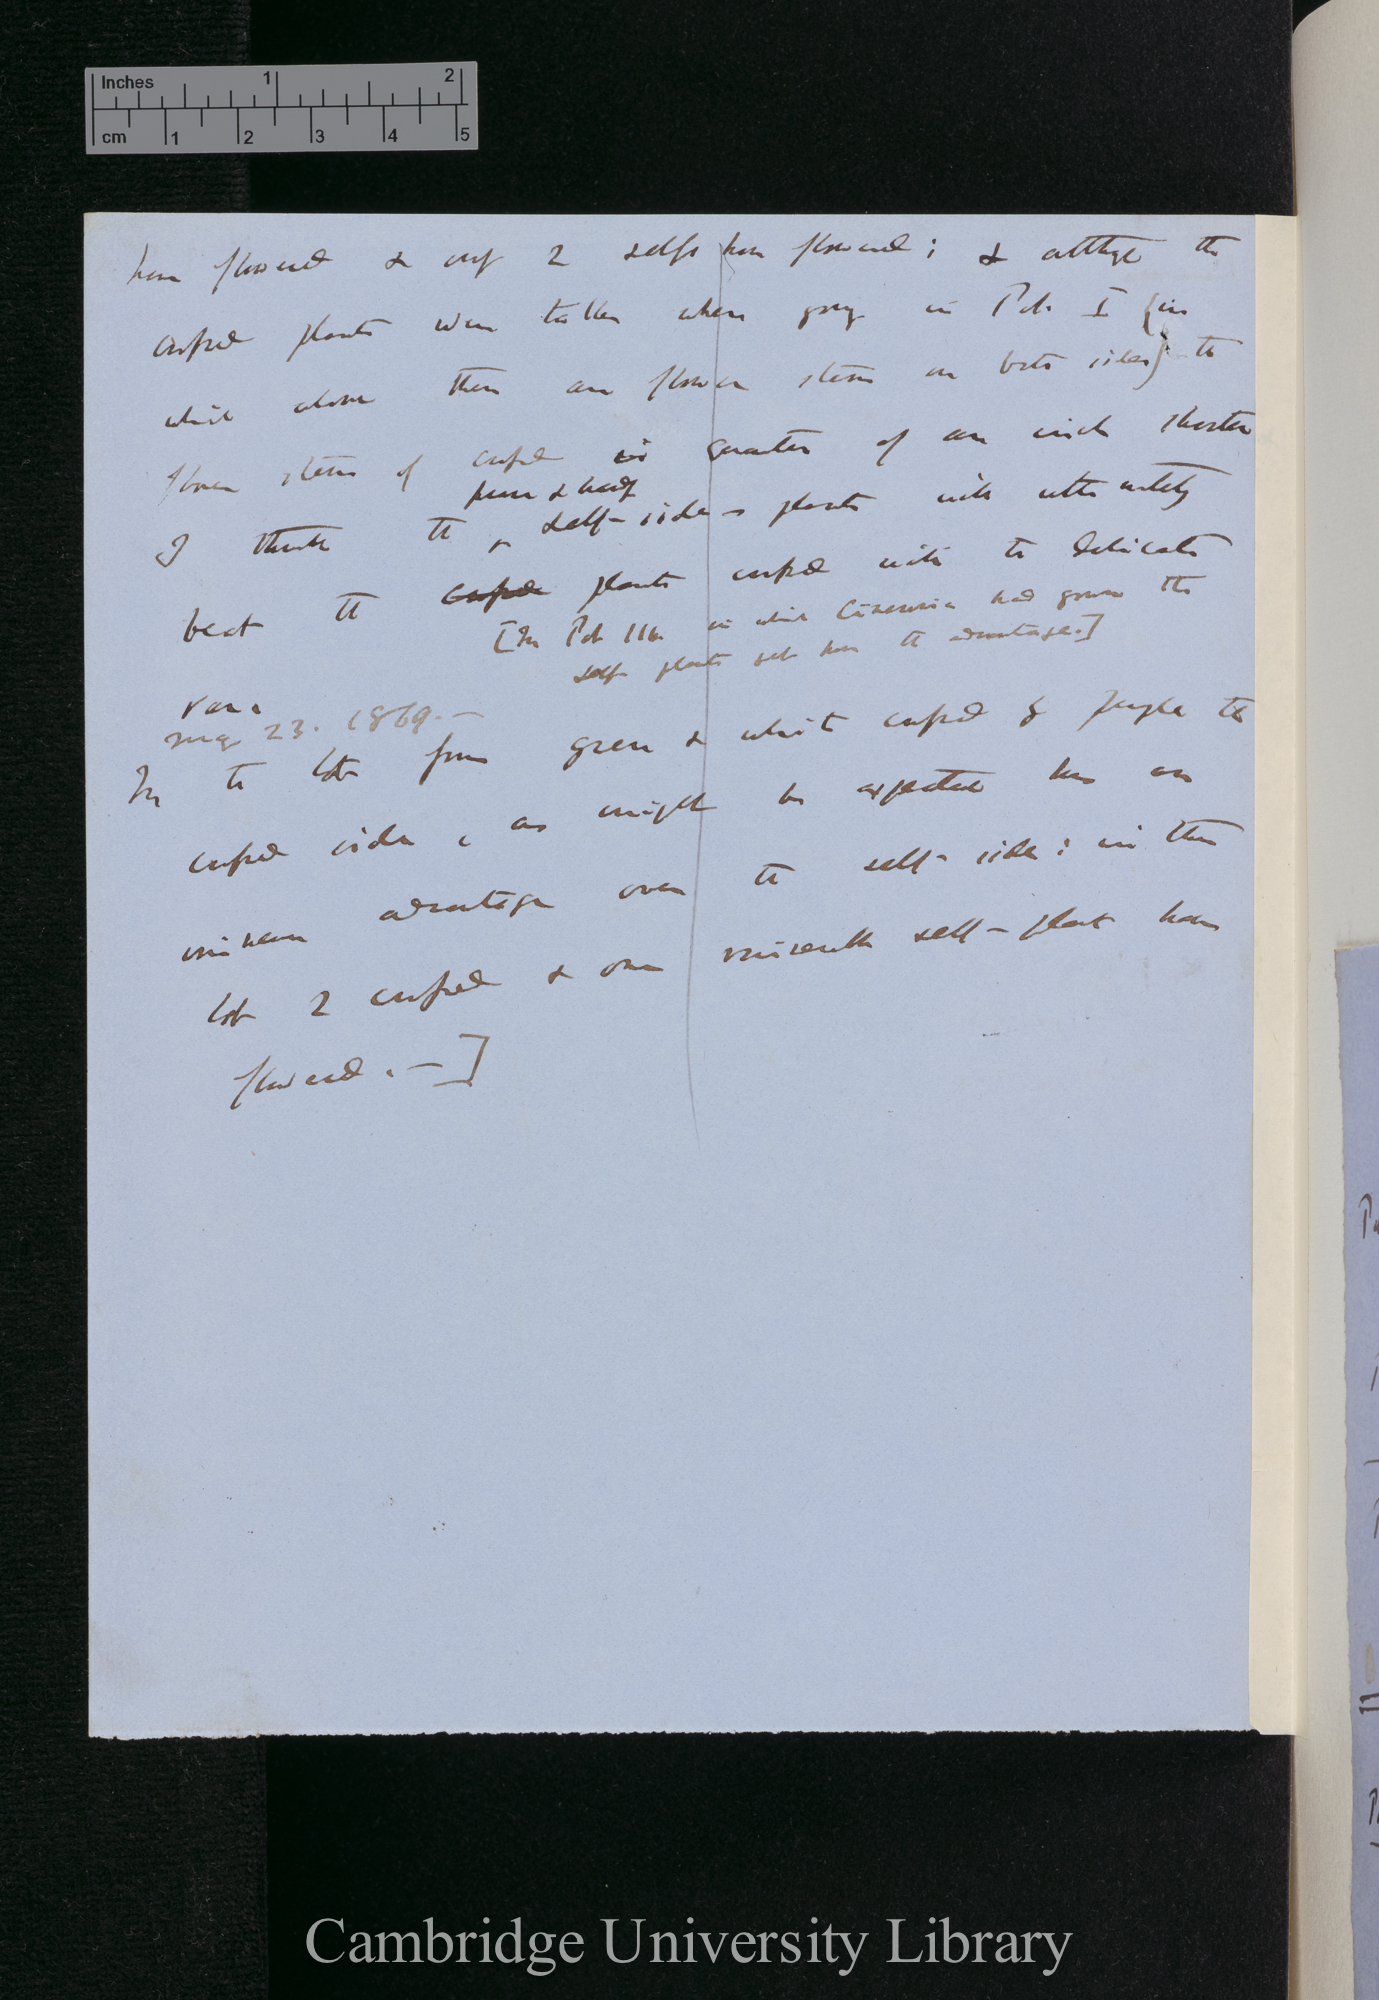 Inches 1 2
cm 1 2 3 4 5
have flowered & only 2 selfs have flowered; & although the
crossed plants were taller when young in Pot I (in
which alone there are flower stems on both sides) the
flower stems of crossed is quarter of an inch shorter
I think the pure & half self-sides plants will ultimately
beat the crossed plants crossed with the delicate
[In Pot III in which Cineraria had grown the
self plants have the advantage.]
var.
23. 1869.—
In the lot from green & white crossed by purple the
crossed side, as might be expected has an
advantage over the self-side: in this
lot 2 crossed & one self-plant have
flowered.—]
Cambridge University Library